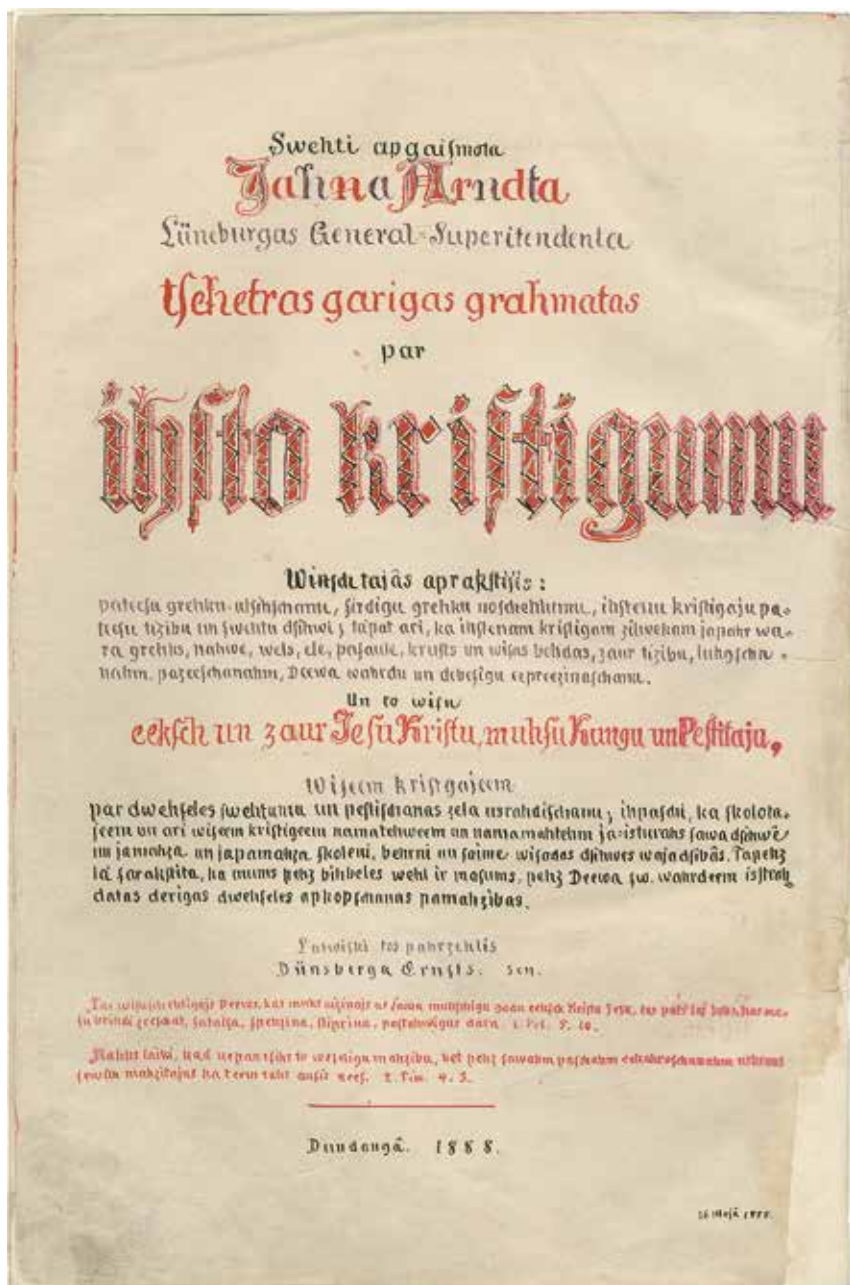 Swehti apgaiſmota
Jahna Arndta
Lüneburgas General-Superitendenta
tſchetras garigas grahmatas
par
ihſto kriſtigumu
Winſch tajâs apraſtijis:
pateeſu grehku-atſihſchanu, ſirdigu grehku noſchehlumu, ihſtenu kriſtigaju pa-
teeſu tizibu un ſwehtu dſihwi; tapat ari, ka ihſtenam kriſtigam zilwekam japahr wa-
ra grehks, nahwe, wels, ele, paſaule, kruſts un wiſas behdas, zaur tizibu, luhgſcha-
nahm, pazeeſchanahm, Deewa wahrdu un debeſigu eepreezinaſchanu.
Un to wiſu
eekſch un zaur Jeſu Kriſtu, muhſu Kungu un Peſtitaju,
Wiſeem kriſtgajeem
par dwehſeles ſwehtumu un peſtiſchanas zela usrahdiſchanu; ihpaſchi, ka ſkolota-
jeem un ari wiſeem kriſtigeem namatehweem un namamahtehm ja-isturahs ſawâ dſihwê
un jamahza un japamahza ſkoleni, behrni un ſaime wiſadas dſihwes wajadſibâs. Tapehz
tà ſarakſtita, ka mums pehz bihbeles wehl ir maſums, pehz Deewa ſw. wahrdeem isſtrah
datas derigas dwehſeles apkopſchanas pamahzibas.
Latwiſki tos pahrzehlis
Dünsberga Ernſts. sen.
Tas wiſuſchehligajs Deews, kas muhs aizinajis us ſawu muhſchigu goda eekſch Kriſtu Jeſu, tas pats
1. Pet. 5. 10.
Nahks laiki, kad nepanesihs to weſeligu mahzibu, bet pehz ſawahm paſchahm eekahroſchanahm
mahzitajus 2. Tim. 4. 3.
Dundangâ. 1888.
26 Maijâ 1888.